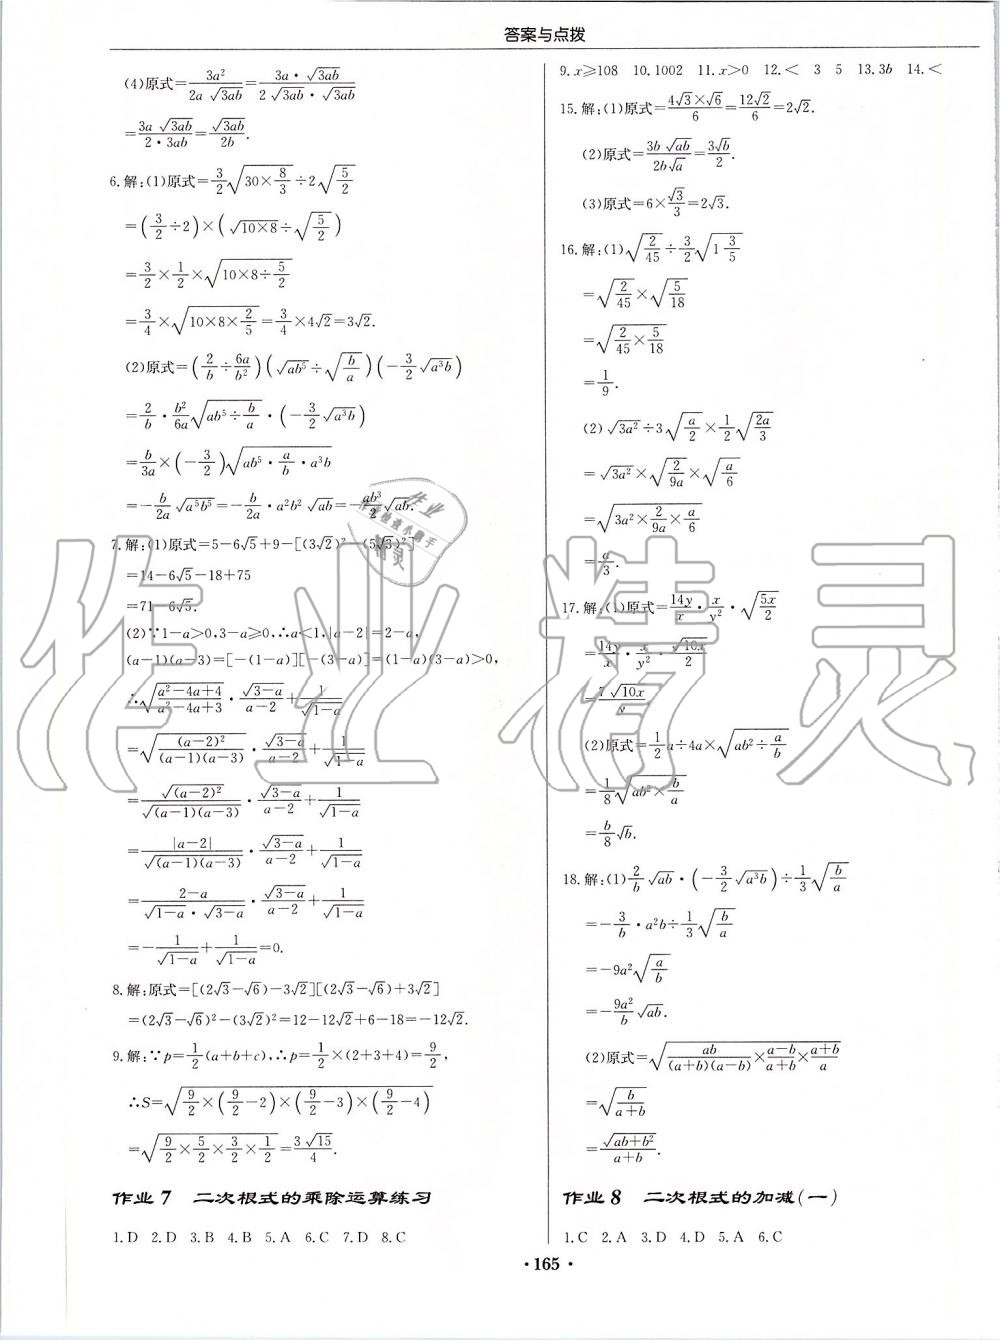 答案与点拨
(4)原式=3a²/(2a√(3ab))=(3a·√(3ab))/(2√(3ab)·√(3ab))
=(3a√(3ab))/(2·3ab)=√(3ab)/(2b).
6.解:(1)原式=3/2√(30×8/3)÷2√(5/2)
=(3/2÷2)×(√(10×8)÷√(5/2))
=3/2×1/2×√(10×8÷5/2)
=3/4×√(10×8×2/5)=3/4×4√2=3√2.
(2)原式=(2/b÷6a/b²)(√(ab⁵)÷√(b/a))(-3/2√(a³b))
=2/b·b²/(6a)√(ab⁵÷b/a)·(-3/2√(a³b))
=b/(3a)×(-3/2)√(ab⁵·a/b·a³b)
=-b/(2a)√(a⁵b⁵)=-b/(2a)·a²b²√(ab)=-ab³/2√(ab).
7.解:(1)原式=5-6√5+9-[(3√2)²-(5√3)²]
=14-6√5-18+75
=71-6√5.
(2)∵1-a>0,3-a≥0,∴a<1,|a-2|=2-a,
(a-1)(a-3)=[-(1-a)][-(3-a)]=(1-a)(3-a)>0,
∴√((a²-4a+4)/(a²-4a+3))·√(3-a)/(a-2)+1/√(1-a)
=√((a-2)²/((a-1)(a-3)))·√(3-a)/(a-2)+1/√(1-a)
=√((a-2)²)/√((a-1)(a-3))·√(3-a)/(a-2)+1/√(1-a)
=|a-2|/√((a-1)(a-3))·√(3-a)/(a-2)+1/√(1-a)
=(2-a)/(√(1-a)·√(3-a))·√(3-a)/(a-2)+1/√(1-a)
=-1/√(1-a)+1/√(1-a)=0.
8.解:原式=[(2√3-√6)-3√2][(2√3-√6)+3√2]
=(2√3-√6)²-(3√2)²=12-12√2+6-18=-12√2.
9.解:∵p=1/2(a+b+c),∴p=1/2×(2+3+4)=9/2,
∴S=√(9/2×(9/2-2)×(9/2-3)×(9/2-4))
=√(9/2×5/2×3/2×1/2)=3√15/4.
作业7 二次根式的乘除运算练习
1.D 2.D 3.B 4.B 5.A 6.C 7.D 8.C
9.x≥108 10.1002 11.x>0 12.< 3 5 13.3b 14.<
15.解:(1)原式=(4√3×√6)/6=12√2/6=2√2.
(2)原式=(3b√(ab))/(2b√a)=3√b/2.
(3)原式=6×√3/3=2√3.
16.解:(1)√(2/45)÷3/2√(1 3/5)
=√(2/45)×√(5/18)
=√(2/45×5/18)
=1/9.
(2)√(3a²)÷3√(a/2)×1/2√(2a/3)
=√(3a²)×√(2/(9a))×√(a/6)
=√(3a²×2/(9a)×a/6)
=a/3.
17.解:(1)原式=14y/x·x/y²·√(5x/2)
=14y/x·x/y²·√(10x)/2
=7√(10x)/y
(2)原式=1/2a÷4a×√(ab²÷a/b)
=1/8√(ab²×b/a)
=b/8√b.
18.解:(1)2/b√(ab)·(-3/2√(a³b))÷1/3√(b/a)
=-3/b·a²b÷1/3√(b/a)
=-9a²√(a/b)
=-9a²/b√(ab).
(2)原式=√(ab/((a+b)(a-b))×(a-b)/(a+b)×(a+b)/a)
=√(b/(a+b))
=√(ab+b²)/(a+b).
作业8 二次根式的加减(一)
1.C 2.A 3.D 4.D 5.A 6.C
·165·
作业精灵